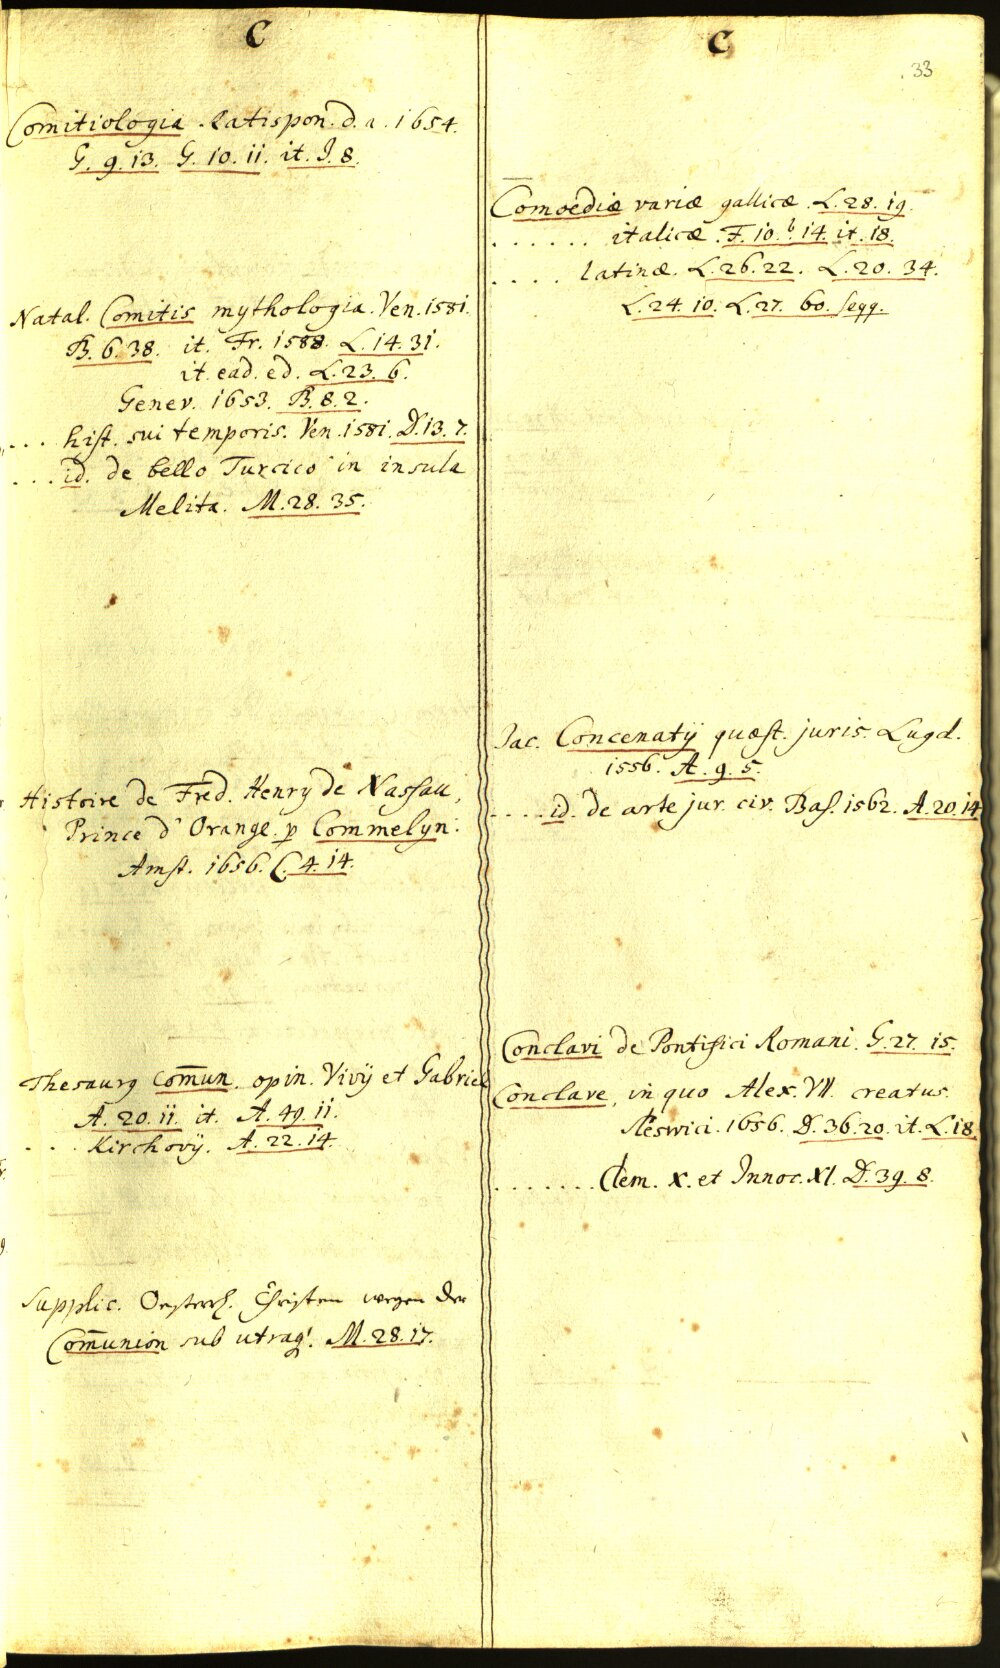 C
Comitiologia Ratispon. d. a. 1654.
G. 9. 13. G. 10. 11. it. J. 8.
Natal. Comitis mythologia. Ven. 1581.
B. 6. 38. it. Fr. 1588. L. 14. 31.
it. ead. ed. L. 23. 6.
Genev. 1653. B. 8. 2.
... hist. sui temporis. Ven. 1581. D. 13. 7.
... id. de bello Turcico in insula
Melita. M. 28. 35.
Histoire de Fred. Henry de Nassau,
Prince d'Orange. p Commelyn.
Amst. 1656. C. 4. 14.
Thesaurg Com̄un. opin. Vivij et Gabriel
A. 20. 11. it. A. 49. 11.
... Kirchovij. A. 22. 14.
Supplic. Oesterr. Christen wegen der
Com̄union sub utraq'. M. 28. 17.
C
33
Comoediæ variæ gallicæ. L. 28. 19.
...... italicæ. F. 10. b. 14. it. 18.
..... latinæ. L. 26. 22. L. 20. 34.
L. 24. 10. L. 27. 60. seqq.
Jac. Concenatij quæst. juris. Lugd.
1556. A. 9. 5.
.... id. de arte jur. civ. Bas. 1562. A. 20. 14
Conclavi de Pontifici Romani. G. 27. 15.
Conclave, in quo Alex. VII. creatus.
Sleswici. 1656. D. 36. 20. it. L. 18.
....... Clem. X. et Innoc. XI. D. 39. 8.